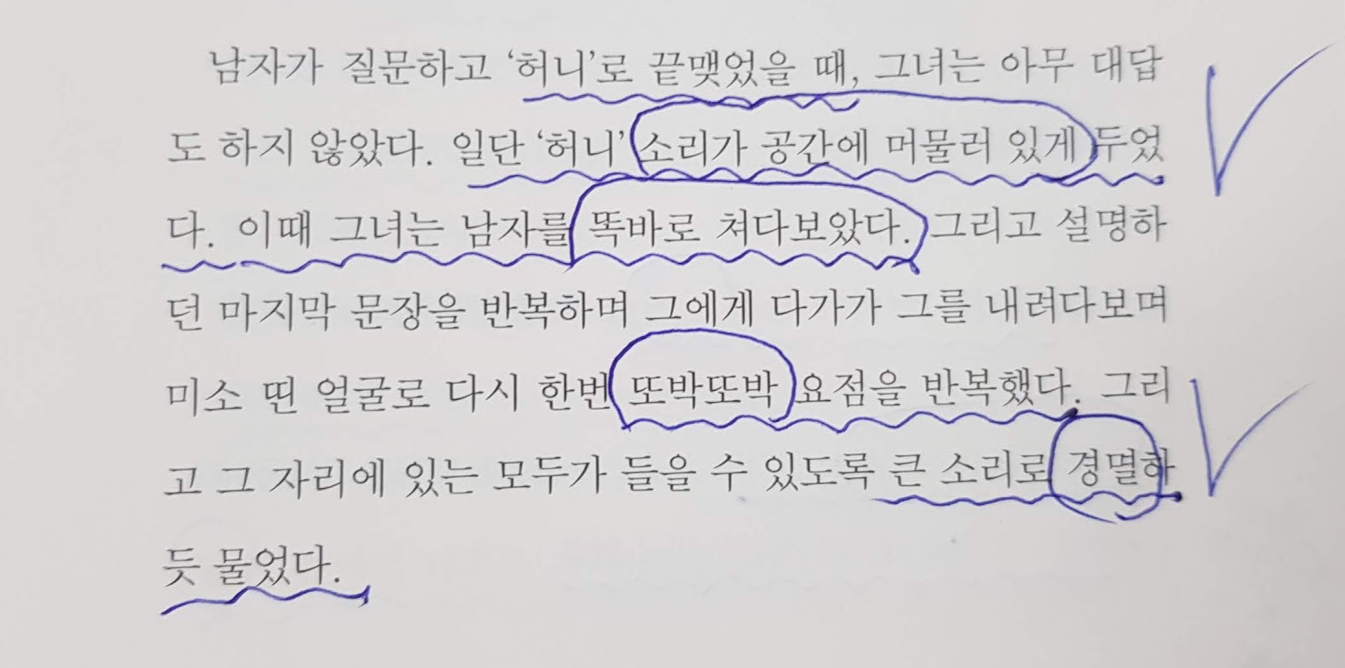 남자가 질문하고 ‘허니’로 끝맺었을 때, 그녀는 아무 대답
도 하지 않았다. 일단 ‘허니’ 소리가 공간에 머물러 있게 두었
다. 이때 그녀는 남자를 똑바로 쳐다보았다. 그리고 설명하
던 마지막 문장을 반복하며 그에게 다가가 그를 내려다보며
미소 띤 얼굴로 다시 한번 또박또박 요점을 반복했다. 그리
고 그 자리에 있는 모두가 들을 수 있도록 큰 소리로 경멸하
듯 물었다.